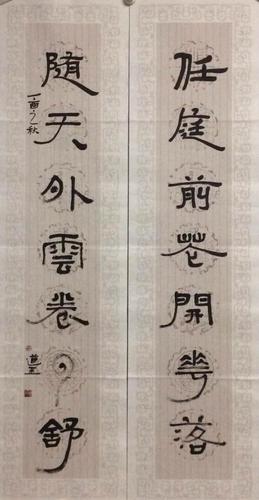 任庭前花開花落
隨天外雲卷云舒
丁酉之秋